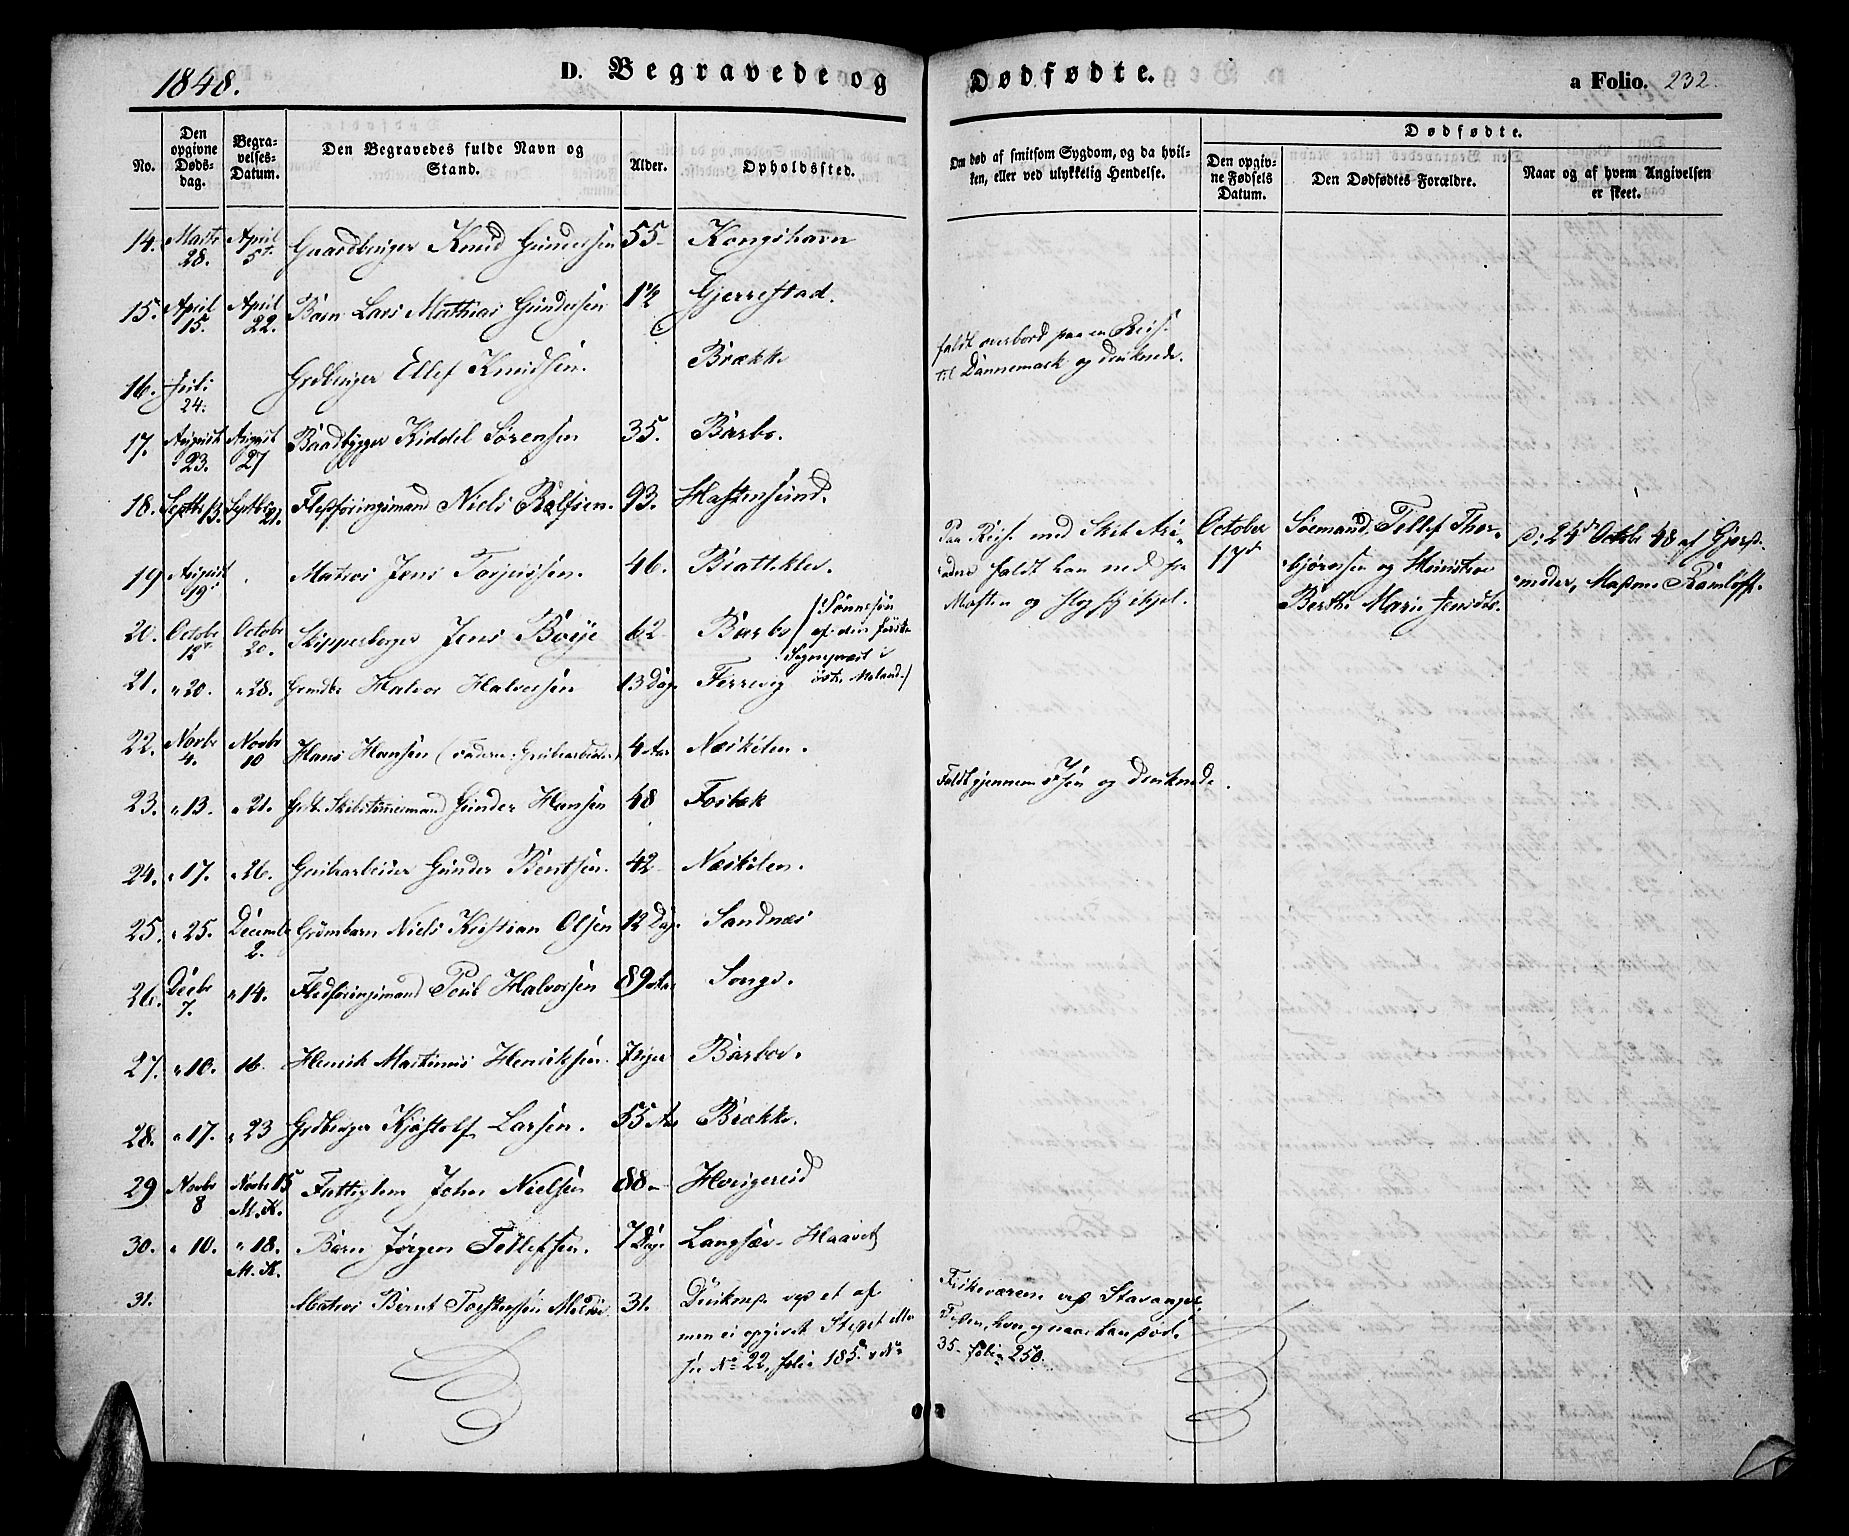 1848.
D. Begravede og Dødfødte.
a Folio. 232.
No.
Den opgivne Døds-dag.
Begra-velses-Datum.
Den Begravedes fulde Navn og Stand.
Alder.
Opholdssted.
Om død af smitsom Sygdom, og da hvil-ken, eller ved ulykkelig Hendelse.
Dødfødte.
Den opgiv-ne Fødsels Datum.
Den Dødfødtes Forældre.
Naar og af hvem Angivelsen er skeet.
14. Marts 28. April 5t. Gaardbruger Knud Gundersen 55 Kongshavn
15. April 15. April 22. Barn Lars Mathias Gundersen 1½ Gjerrestad.
16. Juli 24. Grdbruger Ellef Knudsen. Brække
faldt overbord paa en Reise
til Dannemark og druknede.
17. August 23. August 27 Baadbygger Kiddel Sørensen 35. Barbo.
18. Septbr 13. Septbr 21. Flodføringsmand Niels Rolfsen. 93. Hastensund.
19 August 19. Matros Jens Torjussen. 46. Brattekley.
Paa Reise med Skib
faldt han ned fra
Masten og slog sig ihjel.
October 17de
Sømand Tellef Thor-
bjørnsen og Hustroe
Berthe Marie Jensdtr.
24de Octobr 48 af Gjord-
moder, Madam Ramloff.
20. Octobr 12te October 20. Skipperborger Jens Boye 62 Barbo (Sønnesøn
af den første
Sognepræst i
østre Moland.)
21. " 20. " 28. Grmdbr Halvor Halvorsen 13 Dage Ferrevig
22. Novbr 4. Novbr 10 Hans Hansen (Faderen: Grubearbeider) 4 Aar Neskilen.
23. " 13. " 21. Skibstømmermand Gunder Hansen 48 Fosbæk
Faldt gjennem Isen og druknede.
24. " 17. " 26. Grubearbeider Gunder Bentsen. 42 Neskilen.
25. " 25. December 2. Grdmbarn Niels Kristian Olsen 12 Dage Sandnæs
26. Decbr 7. " 14. Flodføringsmand Poul Halvorsen 89 Aar Songe.
27. " 10. 16. Henrik Martinius Henriksen 7 Uger Barboe.
28. " 17. " 23 Grdbruger Kjøstolf Larsen. 55 Aar Brække.
29 Novbr 8 Novbr 15 M.K. Fattiglem John Nielsen 88 Hougereid
30. " 10. " 18. M.K. Barn Jørgen Tellefsen. 7 Dage Langsæv-Haavet
31. Matros Bernt Torstensen 31. Druknede ved et af
men ei opgivet Stedet eller
see No 22, folio 185
Fiskeværene ved Stavanger
Tiden, hvor og naar han døde
35. folio 250.